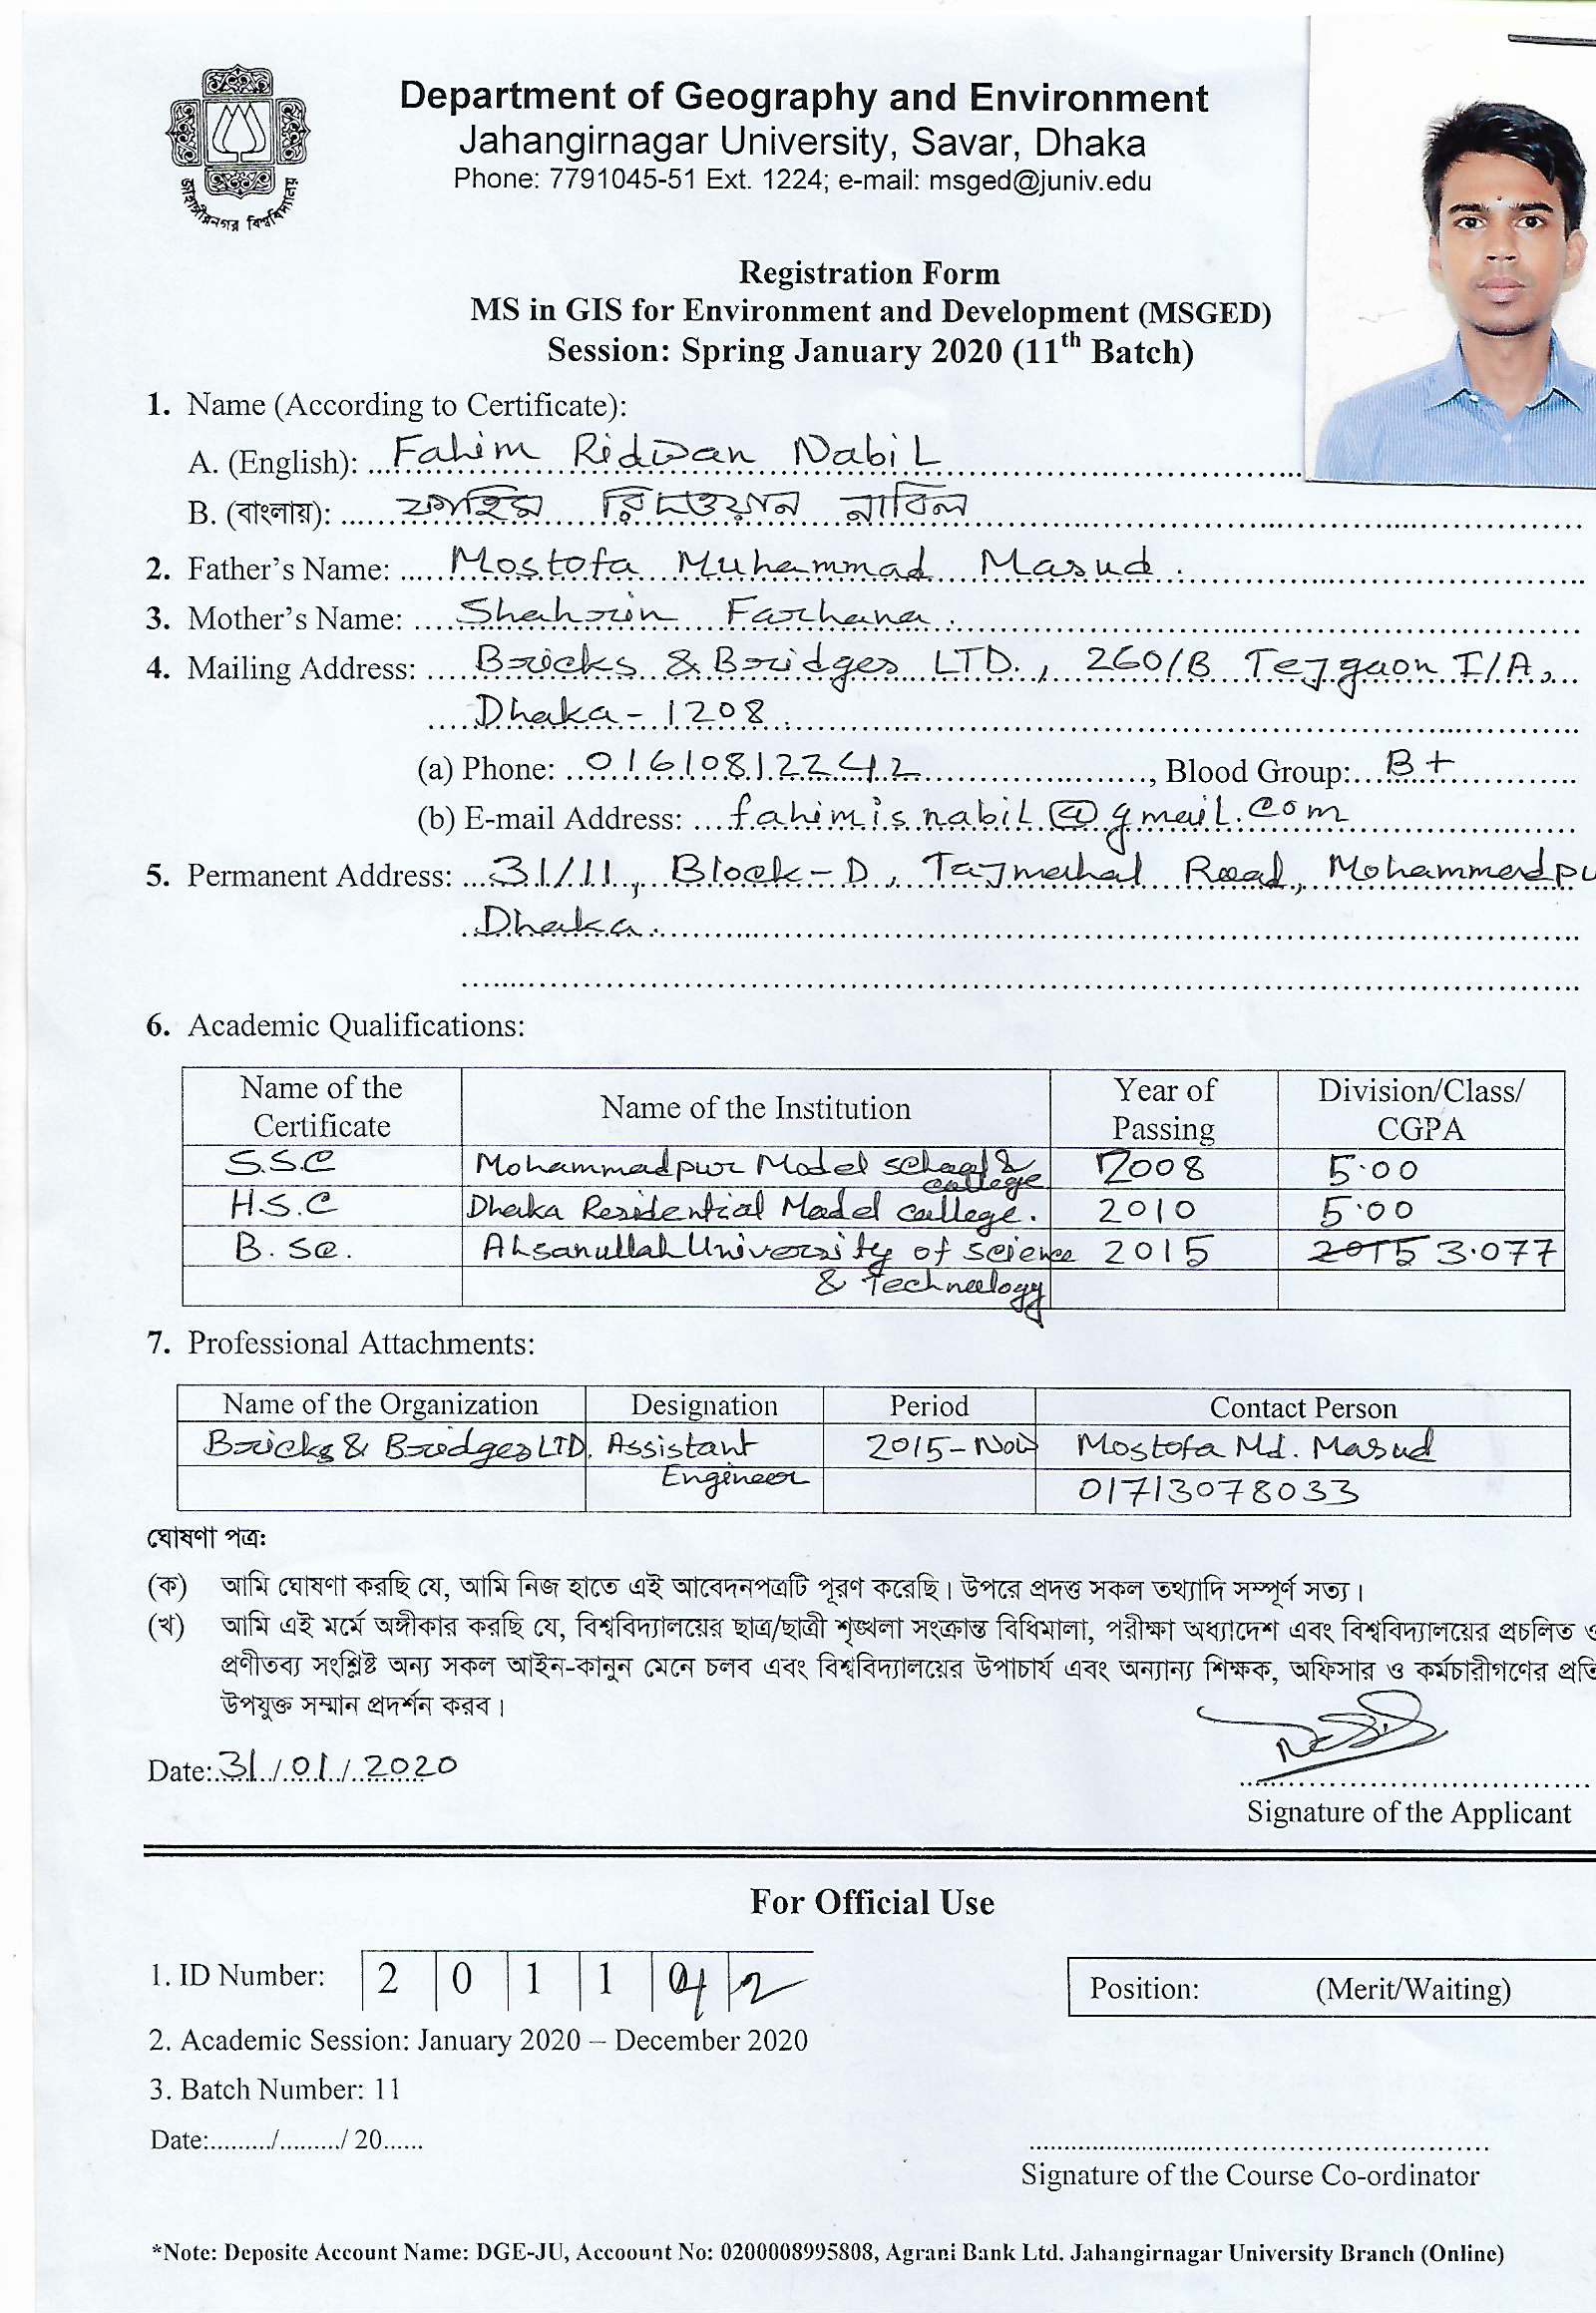 জাহাঙ্গীরনগর বিশ্ববিদ্যালয়
Department of Geography and Environment
Jahangirnagar University, Savar, Dhaka
Phone: 7791045-51 Ext. 1224; e-mail: msged@juniv.edu
Registration Form
MS in GIS for Environment and Development (MSGED)
Session: Spring January 2020 (11th Batch)
1. Name (According to Certificate):
A. (English): Fahim Ridwan Nabil
B. (বাংলায়): ফাহিম রিদওয়ান নাবিল
2. Father's Name: Mostofa Muhammad Masud.
3. Mother's Name: Shahrin Farhana.
4. Mailing Address: Bricks & Bridges LTD., 260/B Tejgaon I/A,
Dhaka-1208.
(a) Phone: 01610812242, Blood Group: B+
(b) E-mail Address: fahimisnabil@gmail.com
5. Permanent Address: 31/11, Block-D, Tajmahal Road, Mohammadpu
Dhaka.
6. Academic Qualifications:
Name of the Certificate Name of the Institution Year of Passing Division/Class/ CGPA
S.S.C Mohammadpur Model school & college 2008 5.00
H.S.C Dhaka Residential Model college. 2010 5.00
B.Sc. Ahsanullah University of science 2015 2015 3.077
& Technology
7. Professional Attachments:
Name of the Organization Designation Period Contact Person
Bricks & Bridges LTD. Assistant 2015-Now Mostofa Md. Masud
Engineer 01713078033
ঘোষণা পত্র:
(ক) আমি ঘোষণা করছি যে, আমি নিজ হাতে এই আবেদনপত্রটি পূরণ করেছি। উপরে প্রদত্ত সকল তথ্যাদি সম্পূর্ণ সত্য।
(খ) আমি এই মর্মে অঙ্গীকার করছি যে, বিশ্ববিদ্যালয়ের ছাত্র/ছাত্রী শৃঙ্খলা সংক্রান্ত বিধিমালা, পরীক্ষা অধ্যাদেশ এবং বিশ্ববিদ্যালয়ের প্রচলিত ও
প্রণীতব্য সংশ্লিষ্ট অন্য সকল আইন-কানুন মেনে চলব এবং বিশ্ববিদ্যালয়ের উপাচার্য এবং অন্যান্য শিক্ষক, অফিসার ও কর্মচারীগণের প্রতি
উপযুক্ত সম্মান প্রদর্শন করব।
Date: 31/01/2020
Signature of the Applicant
For Official Use
1. ID Number: 2 0 1 1 4 2
Position: (Merit/Waiting)
2. Academic Session: January 2020 – December 2020
3. Batch Number: 11
Date:........./........./ 20......
Signature of the Course Co-ordinator
*Note: Deposite Account Name: DGE-JU, Accoount No: 0200008995808, Agrani Bank Ltd. Jahangirnagar University Branch (Online)